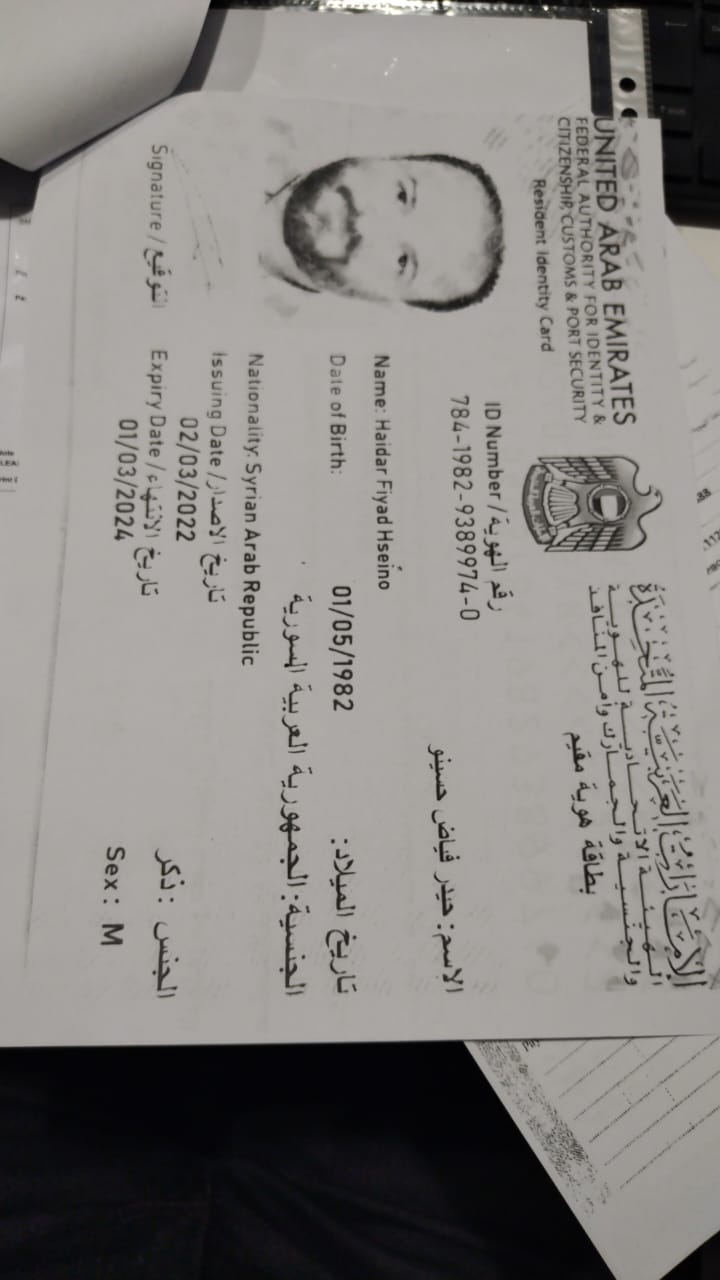 UNITED ARAB EMIRATES
FEDERAL AUTHORITY FOR IDENTITY &
CITIZENSHIP, CUSTOMS & PORT SECURITY
Resident Identity Card
الإمارات العربية المتحدة
الهيئة الاتحادية للهوية
والجنسية والجمارك وأمن المنافذ
بطاقة هوية مقيم
ID Number / رقم الهوية
784-1982-9389974-0
الاسم: حيدر فياض حسينو
Name: Haidar Fiyad Hseino
Date of Birth: 01/05/1982 تاريخ الميلاد:
الجنسية: الجمهورية العربية السورية
Nationality: Syrian Arab Republic
Issuing Date / تاريخ الاصدار
02/03/2022
Expiry Date / تاريخ الانتهاء
01/03/2024
الجنس: ذكر
Sex: M
Signature / التوقيع